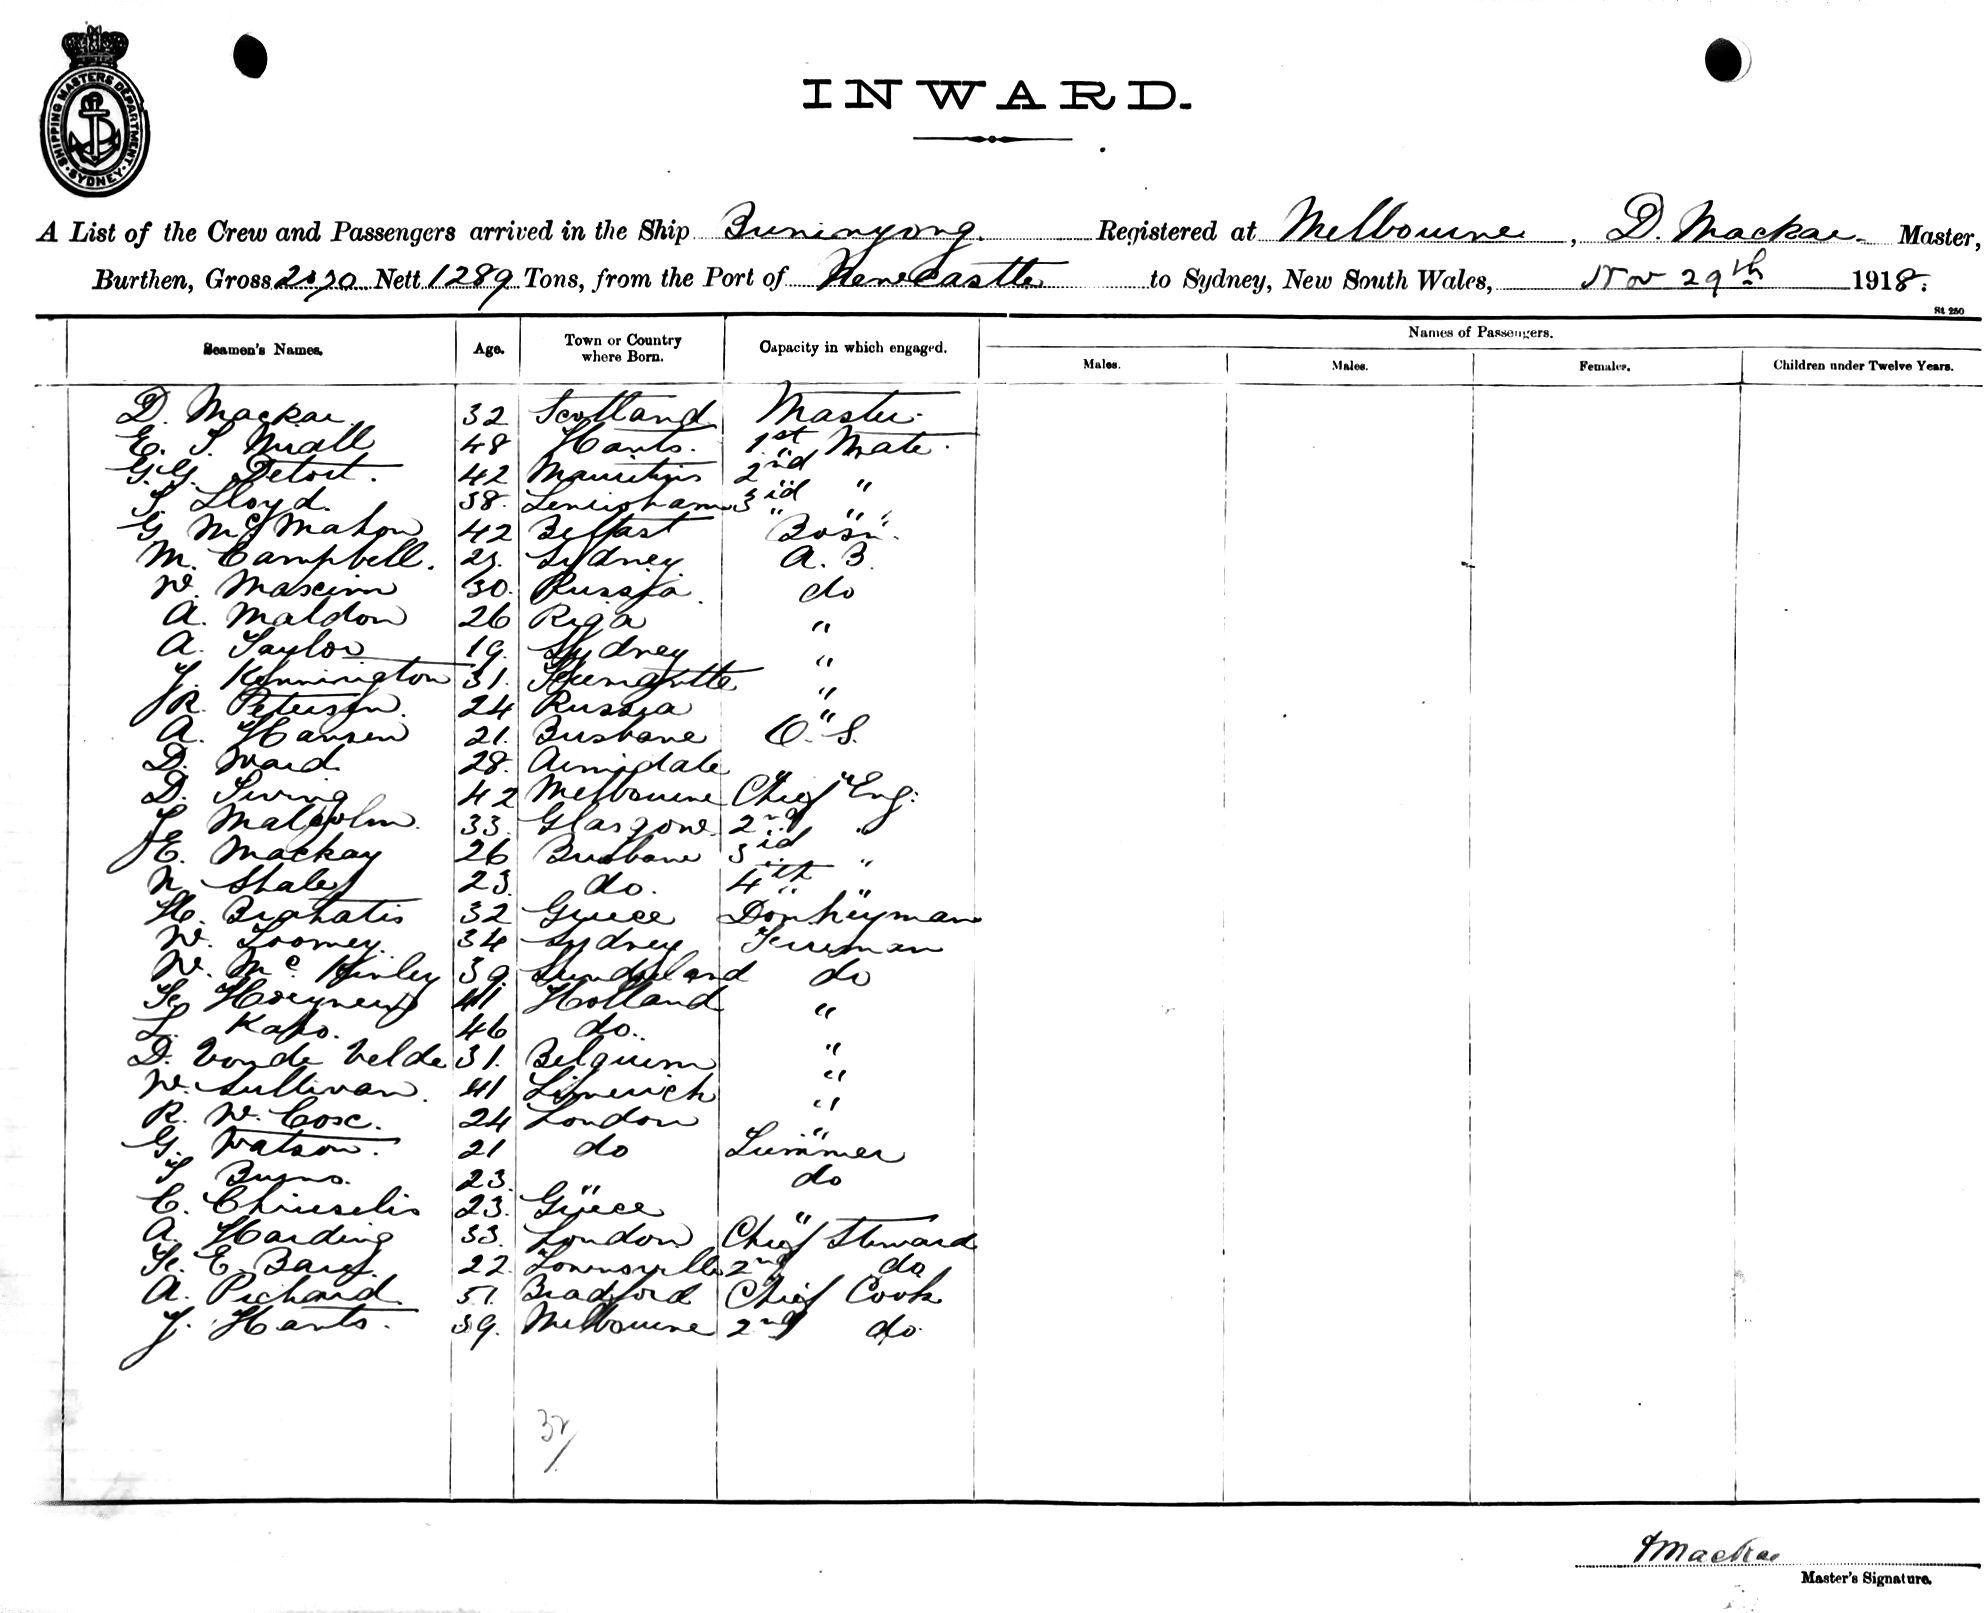 SHIPPING MASTERS DEPARTMENT. SYDNEY.
INWARD.
A List of the Crew and Passengers arrived in the Ship Buninyong. Registered at Melbourne, D. Mackae Master,
Burthen, Gross 2070 Nett 1289 Tons, from the Port of Newcastle to Sydney, New South Wales, Nov 29th 1918.
St 250
Seamen's Names. Age. Town or Country where Born. Capacity in which engaged. Names of Passengers.
Males. Males. Females. Children under Twelve Years.
D. Mackae 32 Scotland Master
E. S. Niall 48 Hants. 1st Mate.
G.G. Detort. 42 Mauritius 2nd "
S. Lloyd. 38. 3rd "
G McMahon 42 Belfast Bosn.
M. Campbell. 23. Sydney A. B.
W. Maxim 30. Russia. do
A. Maldon 26 Riga "
A. Taylor 19. Sydney "
J. Kennington 31. "
R. Petersen. 24 Russia "
A. Hansen 21. Brisbane O. S.
D. Ward 28. Armidale "
D. 42 Melbourne Chief Eng:
J. Malcolm. 33. Glasgow. 2nd "
E. Mackay 26 Brisbane 3rd "
N. Staley 23. do. 4th "
H. 32 Greece Donkeyman
W. Toomey. 34 Sydney Fireman
W. McKinley 39. Sunderland do
41 Holland "
L. Kapo. 46 do. "
D. Vonde Velde 31. Belgium "
W. Sullivan. 41 Limerick "
R. W. Cox. 24 London "
G. Watson. 21 do Trimmer
T Burns. 23. " do
C. 23. Greece "
A. Harding 33. London Chief Steward
E. 22. Townsville 2nd do
A. Pichard. 51. Bradford Chief Cook
J. Hants. 39. Melbourne 2nd do.
32/
DMackae
Master's Signature.